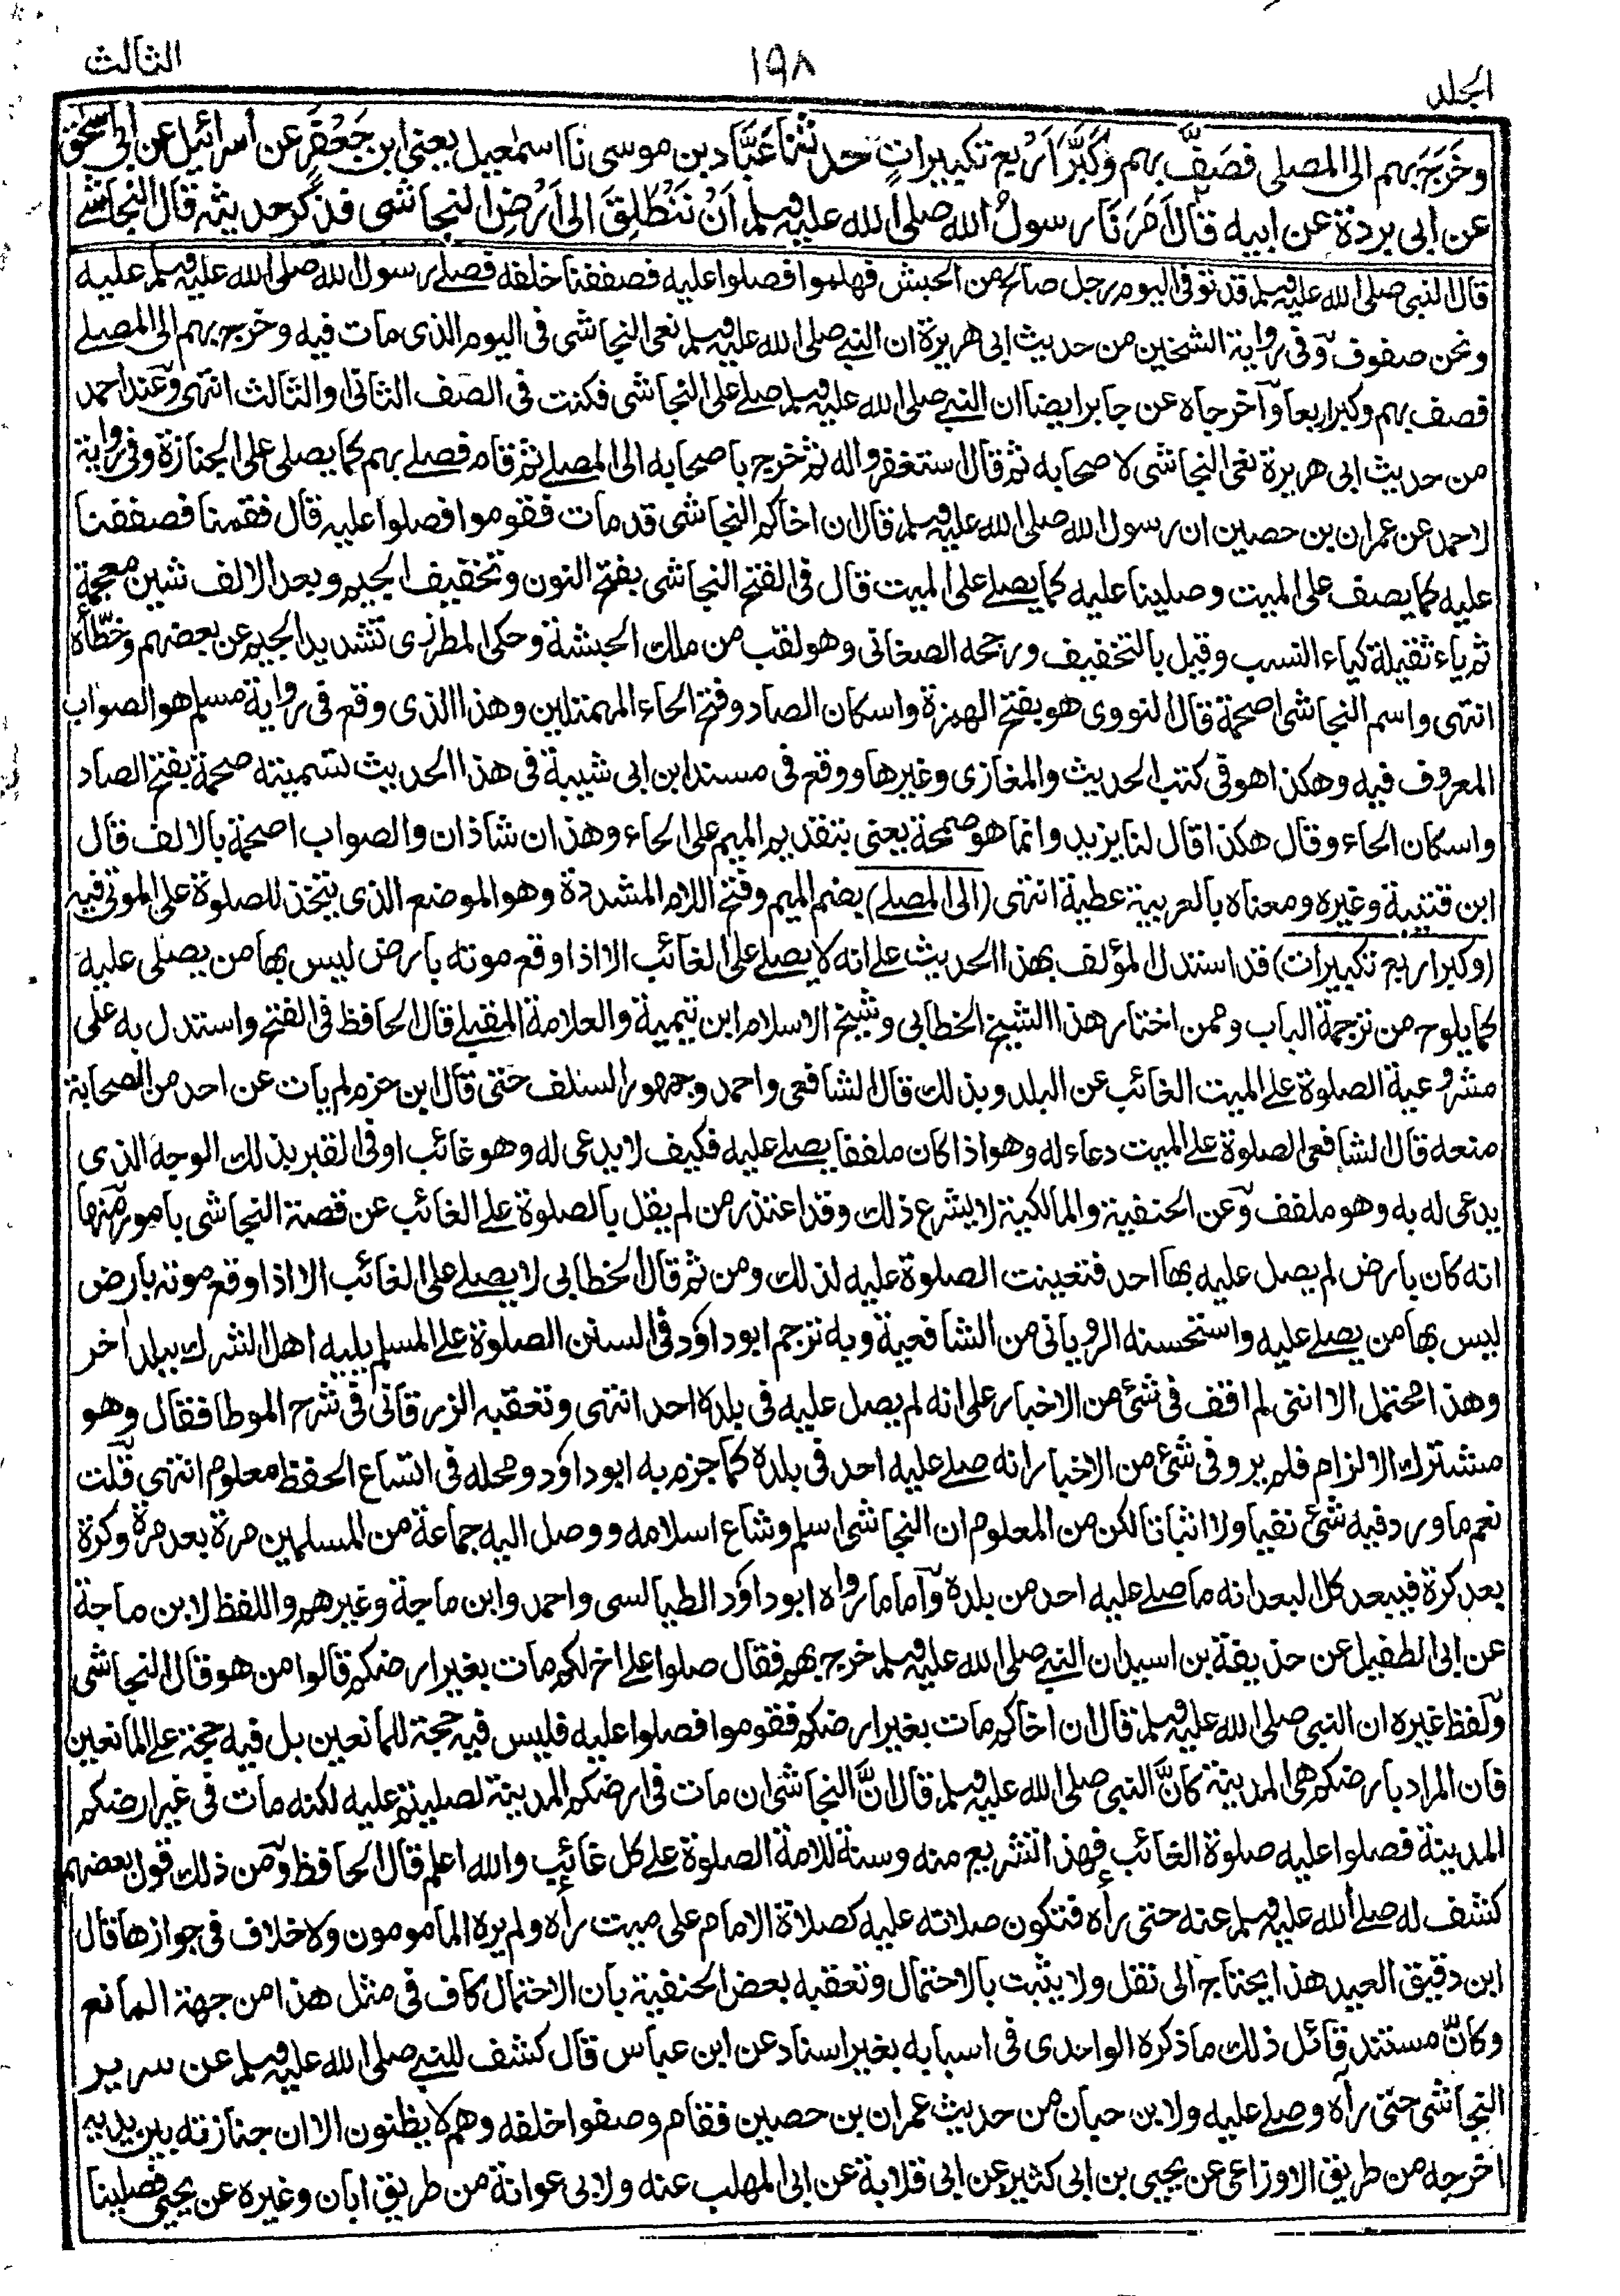 الجلد
١٩٨
الثالث
وخَرَجَ بهم الى المصلى فصَفَّ بهم وكَبَّرَ اَرْبع تكبيراتٍ حدثنا عَبَّاد بن موسى نا اسمعيل يعنى ابن جَعْفَرٍ عن اسرائيل عن ابى اسحٰق
عن ابى بردة عن ابيه قال اَمَرَنَا رسولُ الله صلى الله عليه وسلم اَنْ نَنْطَلِقَ الى اَرْضِ النجاشى فذكر حديثه قال النجاشے
قال النبى صلى الله عليه وسلم قد توفى اليوم رجل صالح من الحبش فهلموا فصلوا عليه فصففنا خلفه فصلے رسول الله صلى الله عليه وسلم عليه
ونحن صفوف وفى رواية الشيخين من حديث ابى هريرة ان النبے صلى الله عليه وسلم نعى النجاشى فى اليوم الذى مات فيه وخرج بهم الى المصلے
فصف بهم وكبر اربعا وآخرجاه عن جابر ايضا ان النبے صلى الله عليه وسلم صلے على النجاشى فكنت فى الصف الثانى او الثالث انتهى وعند احمد
من حديث ابى هريرة نعى النجاشى لاصحابه ثم قال استغفروا له ثم خرج باصحابه الى المصلے ثم قام فصلے بهم كما يصلى على الجنازة وفى رواية
لاحمد عن عمران بن حصين ان رسول الله صلى الله عليه وسلم قال ان اخاكم النجاشى قد مات فقوموا فصلوا عليه قال فقمنا فصففنا
عليه كما يصف على الميت وصلينا عليه كما يصلے على الميت قال فى الفتح النجاشى بفتح النون وتخفيف الجيم وبعد الالف شين معجمة
ثم ياء ثقيلة كياء النسب وقيل بالتخفيف ورجحه الصغانى وهو لقب من ملك الحبشة وحكى المطرزى تشديد الجيم عن بعضهم وخطّأه
انتهى واسم النجاشى اصحمة قال النووى هو بفتح الهمزة واسكان الصاد وفتح الحاء المهملتين وهذا الذى وقع فى رواية مسلم هو الصواب
المعروف فيه وهكذا هو فى كتب الحديث والمغازى وغيرها ووقع فى مسند ابن ابى شيبة فى هذا الحديث تسميته صحمة بفتح الصاد
واسكان الحاء وقال هكذا قال لنا يزيد وانما هو صمحة يعنى بتقديم الميم على الحاء وهذان شاذان والصواب اصحمة بالالف قال
ابن قتيبة وغيره ومعناه بالعربية عطية انتهى (الى المصلے) بضم الميم وفتح اللام المشددة وهو الموضع الذى يتخذ للصلوة على الموتى فيه
(وكبر اربع تكبيرات) قد استدل المؤلف بهذا الحديث علے انه لا يصلے على الغائب الا اذا وقع موته بارض ليس بها من يصلى عليه
كما يلوح من ترجمة الباب وممن اختار هذا الشيخ الخطابى وشيخ الاسلام ابن تيمية والعلامة المقبلے قال الحافظ فى الفتح واستدل به على
مشروعية الصلوة علے الميت الغائب عن البلد وبذلك قال الشافعى واحمد وجمهور السلف حتى قال ابن حزم لم يات عن احد من الصحابة
منعه قال الشافعى الصلوة على الميت دعاء له وهو اذا كان ملففا يصلے عليه فكيف لا يدعى له وهو غائب او فى القبر بذلك الوجه الذى
يدعى له به وهو ملفف وعن الحنفية والمالكية لا يشرع ذلك وقد اعتذر من لم يقل بالصلوة علے الغائب عن قصة النجاشى بامور منها
انه كان بارض لم يصل عليه بها احد فتعينت الصلوة عليه لذلك ومن ثم قال الخطابى لا يصلے على الغائب الا اذا وقع موته بارض
ليس بها من يصلے عليه واستحسنه الرويانى من الشافعية وبه ترجم ابو داؤد فى السنن الصلوة علے المسلم يليه اهل الشرك ببلد اٰخر
وهذا محتمل الا اننى لم اقف فى شئ من الاخبار على انه لم يصل عليه فى بلده احد انتهى وتعقبه الزرقانى فى شرح الموطا فقال وهو
مشترك الالزام فلم يرو فى شئ من الاخبار انه صلے عليه احد فى بلده كما جزم به ابو داؤد ومحله فى اتساع الحفظ معلوم انتهى قلت
نعم ما ورد فيه شئ نفيا ولا اثباتا لكن من المعلوم ان النجاشى اسلم وشاع اسلامه ووصل اليه جماعة من المسلمين مرة بعد مرة وكرة
بعد كرة فيبعد كل البعد انه ما صلے عليه احد من بلده وآما ما رواه ابو داؤد الطيالسى واحمد وابن ماجة وغيرهم واللفظ لابن ماجة
عن ابى الطفيل عن حذيفة بن اسيد ان النبے صلى الله عليه وسلم خرج بهم فقال صلوا على اخ لكم مات بغير ارضكم قالوا من هو قال النجاشى
ولفظ غيره ان النبى صلى الله عليه وسلم قال ان اخاكم مات بغير ارضكم فقوموا فصلوا عليه فليس فيه حجة للمانعين بل فيه حجة علے المانعين
فان المراد بارضكم هى المدينة كانَّ النبى صلى الله عليه وسلم قال انَّ النجاشى ان مات فى ارضكم المدينة لصليتم عليه لكنه مات فى غير ارضكم
المدينة فصلوا عليه صلوة الغائب فهذا تشريع منه وسنة للامة الصلوة علے كل غائب والله اعلم قال الحافظ ومن ذلك قول بعضهم
كشف له صلے الله عليه وسلم عنه حتى رأه فتكون صلاته عليه كصلاة الامام على ميت رأه ولم يره المامومون ولا خلاف فى جوازها قال
ابن دقيق العيد هذا يحتاج الى نقل ولا يثبت بالاحتمال وتعقبه بعض الحنفية بان الاحتمال كاف فى مثل هذا من جهة المانع
وكانّ مستند قائل ذلك ما ذكره الواحدى فى اسبابه بغير اسناد عن ابن عباس قال كشف للنبے صلى الله عليه وسلم عن سرير
النجاشى حتى رأه وصلے عليه ولابن حبان من حديث عمران بن حصين فقام وصفوا خلفه وهم لا يظنون الا ان جنازته بين يديه
اخرجه من طريق الاوزاعى عن يحيى بن ابى كثير عن ابى قلابة عن ابى المهلب عنه ولابى عوانة من طريق ابان وغيره عن يحيى فصلينا